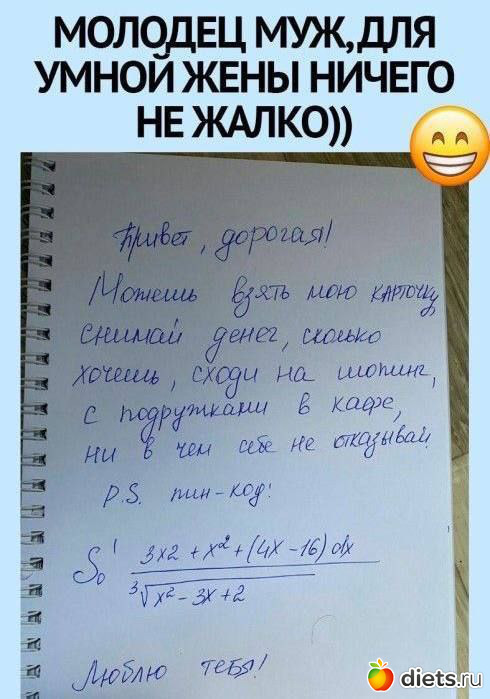 МОЛОДЕЦ МУЖ,ДЛЯ
УМНОЙ ЖЕНЫ НИЧЕГО
НЕ ЖАЛКО))
Привет, дорогая!
Можешь взять мою карточку,
снимай денег, сколько
хочешь, сходи на шопинг,
с подружками в кафе,
ни в чем себе не отказывай
P.S. пин-код:
S₀¹ 3x2 + x² + (4x - 16) dx
³√x² - 3x + 2
Люблю тебя!
diets.ru